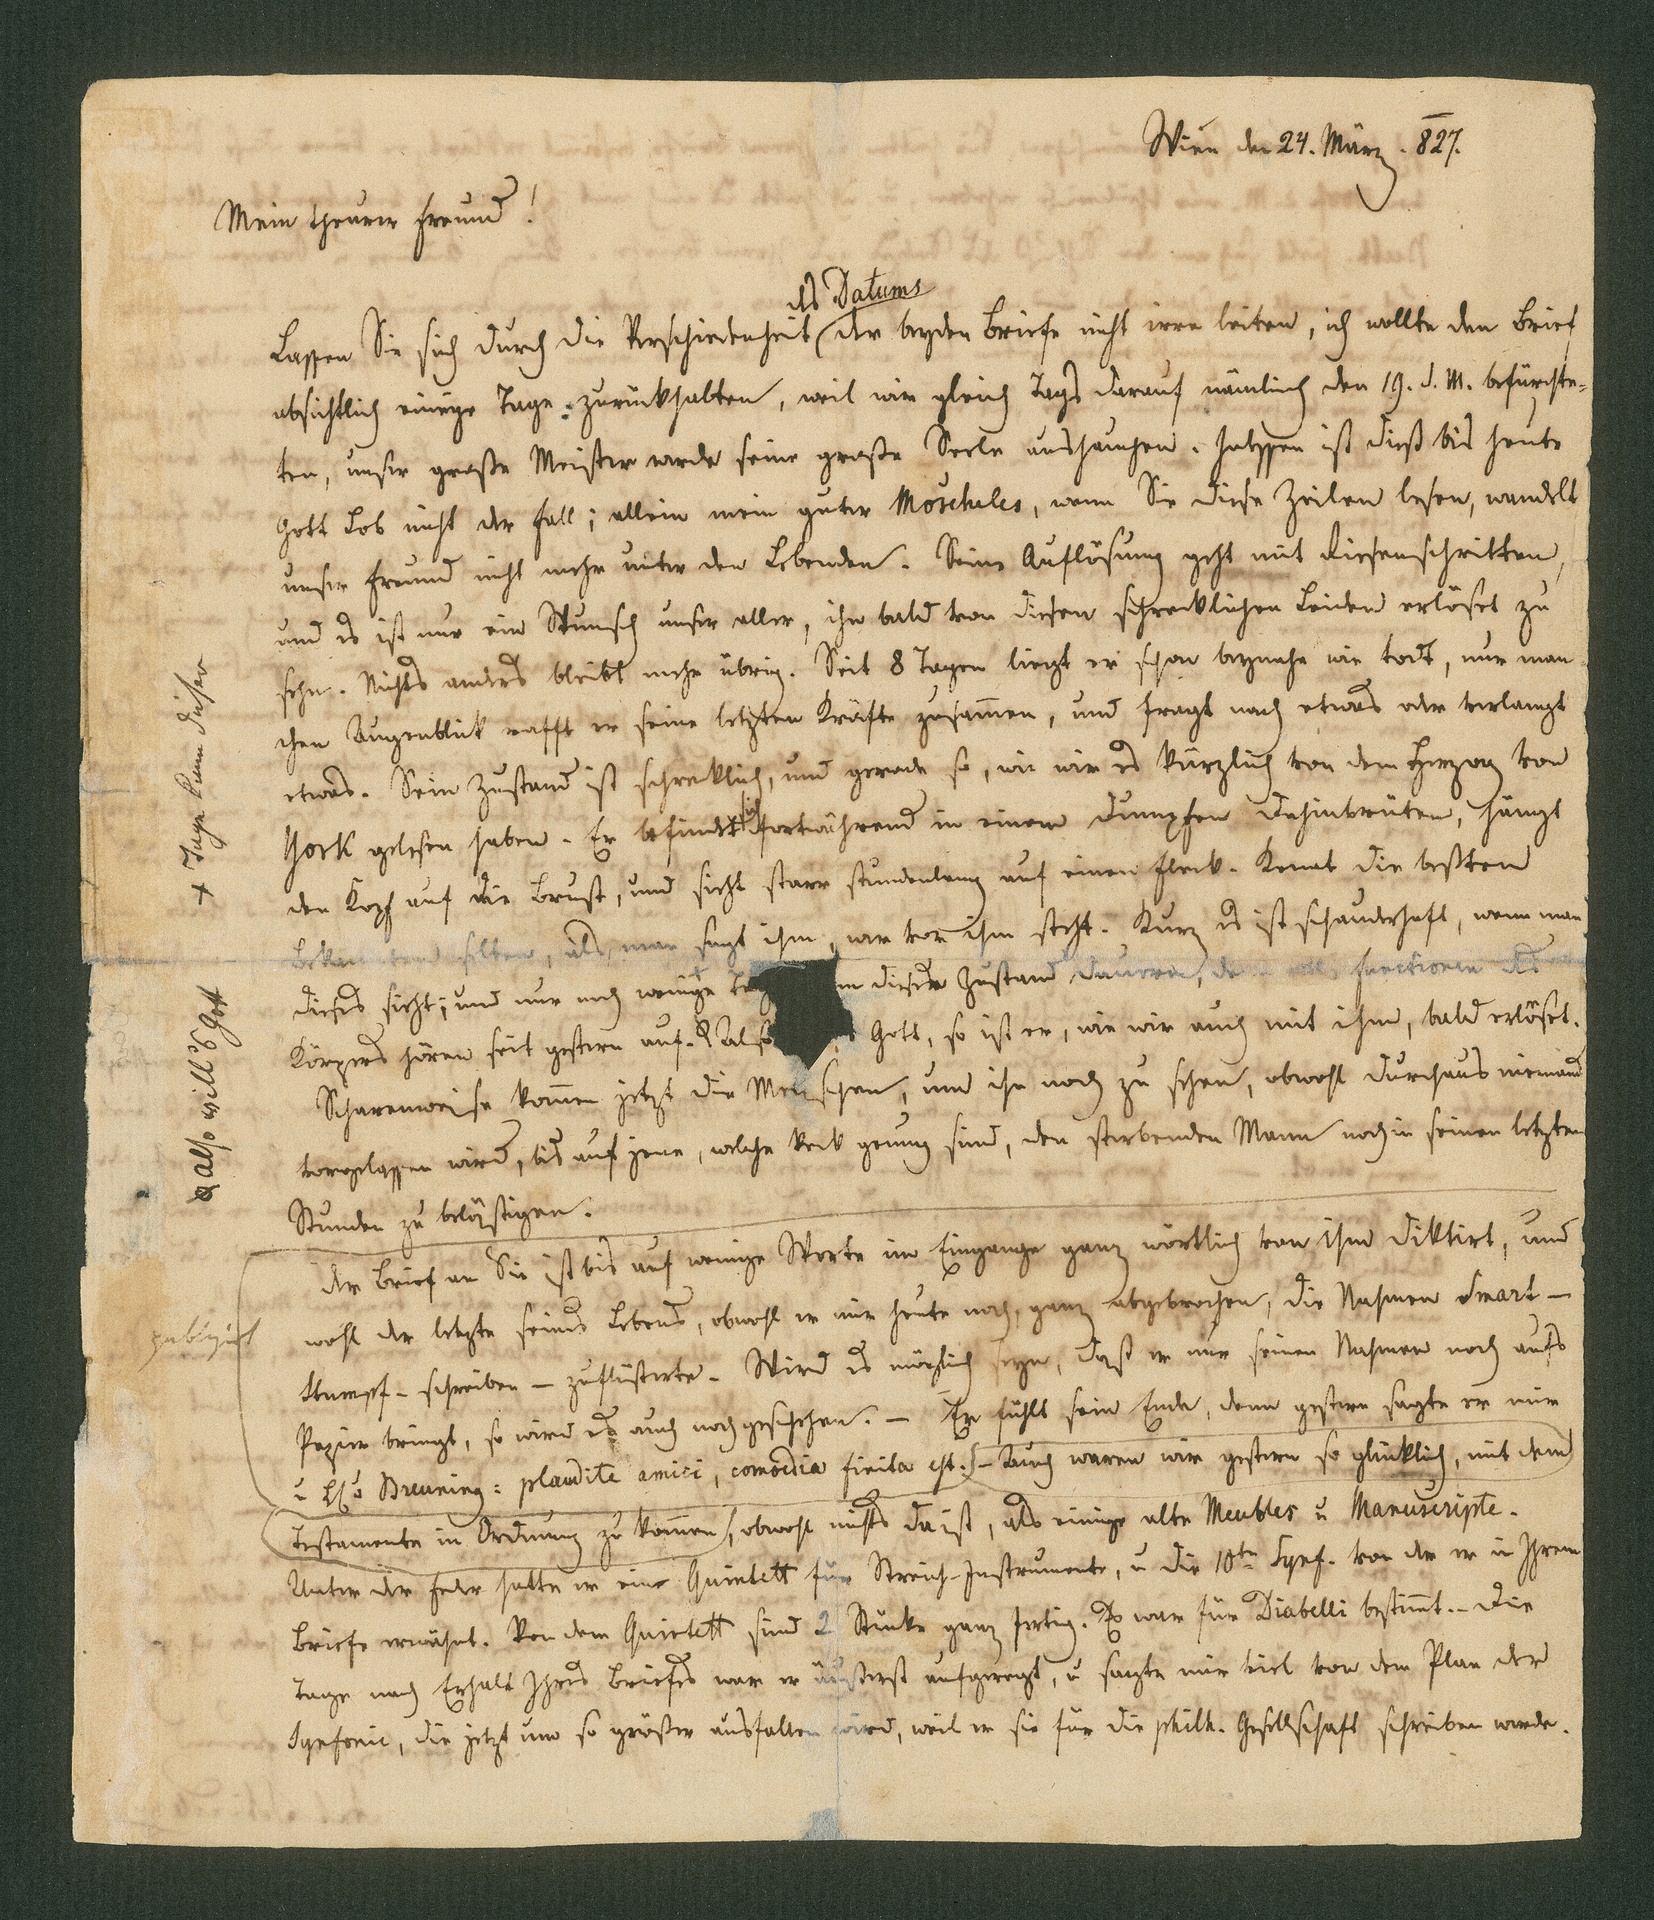 Wien den 24. März. 827.
Mein theurer Freund!
des Datums
Lassen Sie sich durch die Verschiedenheit der beyden Briefe nicht irre leiten, ich wollte den Brief
absichtlich einige Tage zurückhalten, weil wir gleich Tags darauf nämlich den 19. d. M. befürchte-
ten, unser große Meister werde seine große Seele aushauchen. Indessen ist dieß bis heute
Gott Lob nicht der Fall; allein mein guter Moscheles, wenn Sie diese Zeilen lesen, wandelt
unser Freund nicht mehr unter den Lebenden. Seine Auflösung geht mit Riesenschritten,
und es ist nur ein Wunsch unser aller, ihn bald von diesen schrecklichen Leiden erlöset zu
sehn. Nichts anders bleibt mehr übrig. Seit 8 Tagen liegt er schon beynahe wie todt, nur man
chen Augenblick rafft er seine letzten Kräfte zusammen, und fragt nach etwas oder verlangt
etwas. Sein Zustand ist schrecklich, und gerade so, wie wir es kürzlich von dem Herzog von
York gelesen haben. Er befindet sich fortwährend in einem dumpfen Dahinbrüten, hängt
den Kopf auf die Brust, und sieht starr stundenlang auf einen Fleck. Kennt die besten
Bekannten selten, als man sagt ihm, wer vor ihm steht. Kurz es ist schauderhaft, wenn man
dieses sieht; und nur noch wenige dieser Zustand dauern, denn alle Functionen des
Körpers hören seit gestern auf. Also Gott, so ist er, wie wir auch mit ihm, bald erlöset.
Scharenweise kommen jetzt die Menschen, um ihn noch zu sehen, obwohl durchaus niemand
vorgelassen wird, bis auf jene, welche keck genug sind, den sterbenden Mann noch in seinen letzten
Stunden zu belästigen.
Der Brief an Sie ist bis auf wenige Worte im Eingange ganz wörtlich von ihm diktirt, und
wohl der letzte seines Lebens, obwohl er mir heute noch, ganz abgebrochen, die Nahmen Smart —
Stumpf — schreiben — zuflüsterte. Wird es möglich seyn, daß er nur seinen Nahmen noch aufs
Papier bringt, so wird es auch noch geschehen. — Er fühlt sein Ende, denn gestern sagte er mir
u Breuning: plaudite amici, comoedia finita est. — Auch waren wir gestern so glücklich, mit dem
Testamente in Ordnung zu kommen, obwohl nichts da ist, als einige alte Meubles u Manuscripte.
Unter der Feder hatte er ein Quintett für Streich-Instrumente, u die 10te Synf. von der er in Ihrem
Briefe erwähnt. Von dem Quintett sind 2 Stücke ganz fertig. Es war für Diabelli bestimmt. — Die
Tage nach Erhalt Ihres Briefes war er äußerst aufgeregt, u sagte mir viel von dem Plan der
Synfonie, die jetzt um so größer ausfallen wird, weil er sie für die philh. Gesellschaft schreiben werde.
+ Tage kann dieser
also will's Gott